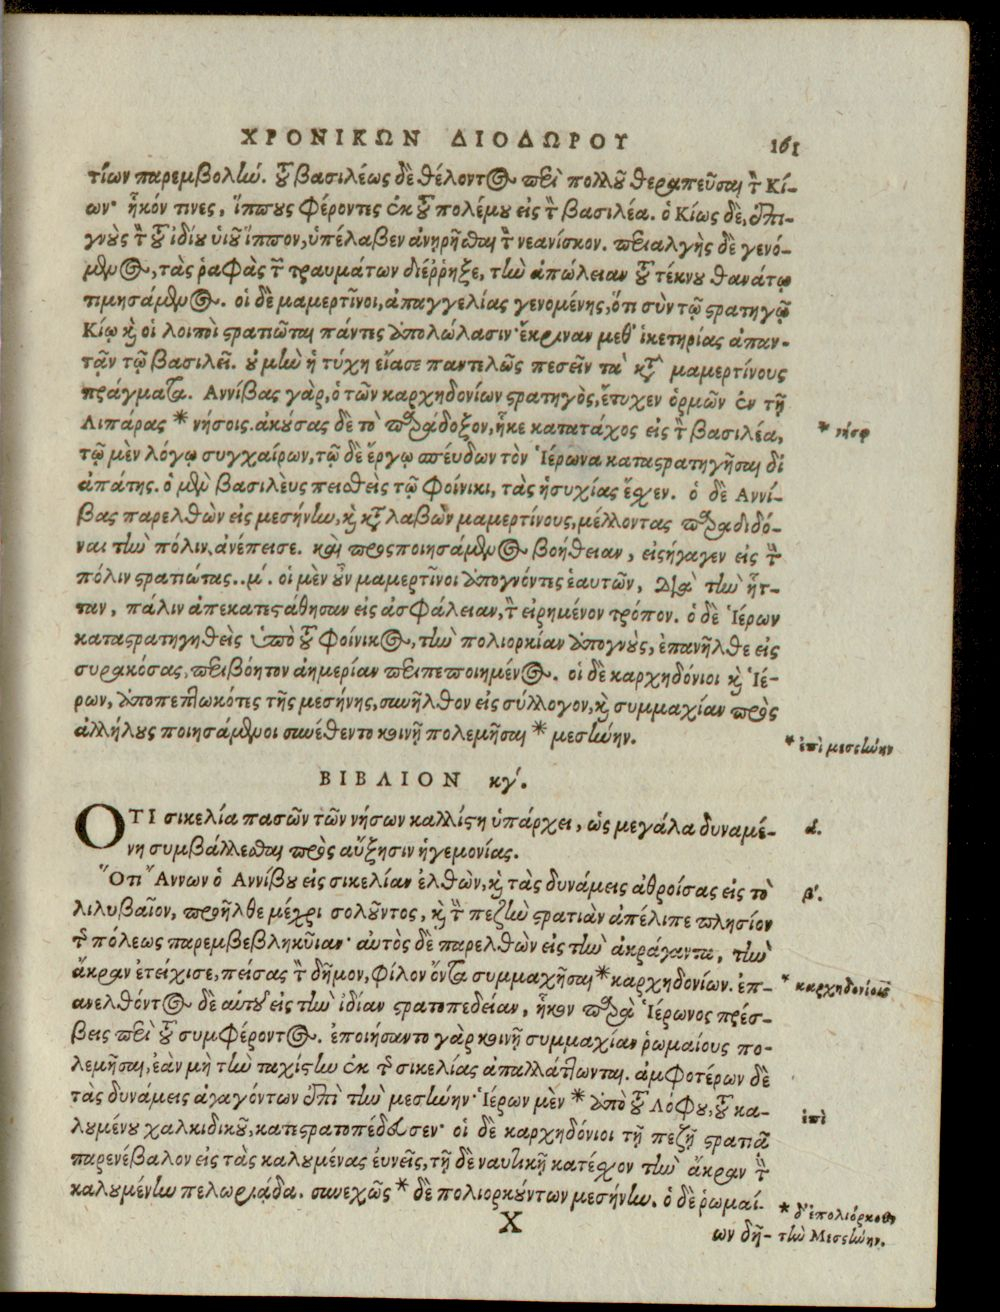 ΧΡΟΝΙΚΩΝ ΔΙΟΔΩΡΟΥ 161
τίων παρεμβολὴν. τοῦ βασιλέως δὲ θέλοντος περὶ πολλοῦ θεραπεῦσαι τὸν Κί-
ων· ἧκόν τινες, ἵππους φέροντες ἐκ τοῦ πολέμου εἰς τὸν βασιλέα. ὁ Κίως δὲ, ἐπι-
γνοὺς τὸν τοῦ ἰδίου υἱοῦ ἵππον, ὑπέλαβεν ἀνῃρῆσθαι τὸν νεανίσκον. περιαλγὴς δὲ γενό-
μενος, τὰς ῥαφὰς τῶν τραυμάτων διέῤῥηξε, τὴν ἀπώλειαν τοῦ τέκνου θανάτῳ
τιμησάμενος. οἱ δὲ μαμερτῖνοι, ἀπαγγελίας γενομένης, ὅτι σὺν τῷ στρατηγῷ
Κίῳ καὶ οἱ λοιποὶ στρατιῶται πάντες ἀπολώλασιν· ἔκριναν μεθ' ἱκετηρίας ἀπαν-
τᾶν τῷ βασιλεῖ. οὐ μὴν ἡ τύχη εἴασε παντελῶς πεσεῖν τὰ κατὰ μαμερτίνους
πράγματα. Αννίβας γὰρ, ὁ τῶν καρχηδονίων στρατηγὸς, ἔτυχεν ὁρμῶν ἐν τῇ
Λιπάρας * νήσοις. ἀκούσας δὲ τὸ παράδοξον, ἧκε κατατάχος εἰς τὸν βασιλέα, * νήσῳ
τῷ μὲν λόγῳ συγχαίρων, τῷ δὲ ἔργῳ σπεύδων τὸν Ἱέρωνα καταστρατηγῆσαι δι'
ἀπάτης. ὁ μὲν βασιλεὺς πεισθεὶς τῷ Φοίνικι, τὰς ἡσυχίας ἔσχεν. ὁ δὲ Αννί-
βας παρελθὼν εἰς μεσήνην, καὶ καταλαβὼν μαμερτίνους, μέλλοντας παραδιδό-
ναι τὴν πόλιν, ἀνέπεισε. καὶ προςποιησάμενος βοήθειαν, εἰςήγαγεν εἰς τὴν
πόλιν στρατιώτας..μ'. οἱ μὲν οὖν μαμερτῖνοι ἀπογνόντες ἑαυτῶν, διὰ τὴν ἧτ-
ταν, πάλιν ἀπεκατεστάθησαν εἰς ἀσφάλειαν, τὸν εἰρημένον τρόπον. ὁ δὲ Ἱέρων
καταστρατηγηθεὶς ὑπὸ τοῦ Φοίνικος, τὴν πολιορκίαν ἀπογνοὺς, ἐπανῆλθε εἰς
συρακόσας, περιβόητον ἀημερίαν περιπεποιημένος. οἱ δὲ καρχηδόνιοι καὶ Ἱέ-
ρων, ἀποπεπτωκότες τῆς μεσήνης, συνῆλθον εἰς σύλλογον, καὶ συμμαχίαν πρὸς
ἀλλήλους ποιησάμενοι συνέθεντο κοινῇ πολεμῆσαι * μεσήνην. * ἐπὶ μεσσήνην
ΒΙΒΛΙΟΝ κγ'.
ΟΤΙ σικελία πασῶν τῶν νήσων καλλίστη ὑπάρχει, ὡς μεγάλα δυναμέ- α.
νη συμβάλλεσθαι πρὸς αὔξησιν ἡγεμονίας.
Ὅτι Ἄννων ὁ Αννίβου εἰς σικελίαν ἐλθὼν, καὶ τὰς δυνάμεις ἀθροίσας εἰς τὸ β'.
λιλυβαῖον, προῆλθε μέχρι σολοῦντος, καὶ τὴν πεζὴν στρατιὰν ἀπέλιπε πλησίον
τῆς πόλεως παρεμβεβληκῦιαν· αὐτὸς δὲ παρελθὼν εἰς τὴν ἀκράγαντα, τὴν
ἄκραν ἐτείχισε, πείσας τὸν δῆμον, φίλον ὄντα συμμαχῆσαι * καρχηδονίων. ἐπ- * καρχηδονίοις
ανελθόντος δὲ αὐτοῦ εἰς τὴν ἰδίαν στρατοπεδείαν, ἧκον παρὰ Ἱέρωνος πρέσ-
βεις περὶ τοῦ συμφέροντος. ἐποιήσαντο γὰρ κοινῇ συμμαχίαν ῥωμαίους πο-
λεμῆσαι, ἐὰν μὴ τὴν ταχίστην ἐκ τῆς σικελίας ἀπαλλάττωνται. ἀμφοτέρων δὲ
τὰς δυνάμεις ἀγαγόντων ἐπὶ τὴν μεσήνην· Ἱέρων μὲν * ἀπὸ τοῦ Λόφου, τοῦ κα- ἐπὶ
λουμένου χαλκιδικοῦ, κατεστρατοπέδευσεν· οἱ δὲ καρχηδόνιοι τῇ πεζῇ στρατιᾷ
παρενέβαλον εἰς τὰς καλουμένας ἐυνεῖς, τῇ δὲ ναυτικῇ κατέσχον τὴν ἄκραν τὴν
καλουμένην πελωριάδα. συνεχῶς * δὲ πολιορκούντων μεσήνην. ὁ δὲ ῥωμαί- * δ' ἐπολιόρκουν
Χ ων δῆ- τὴν Μεσσήνην.